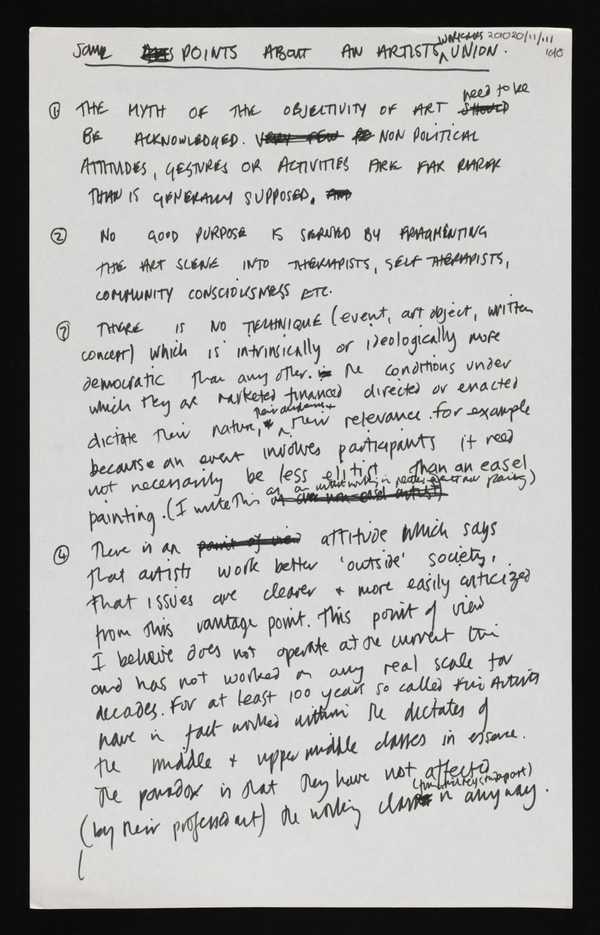 SOME POINTS ABOUT AN ARTISTS WORKERS UNION.
201020/11/111
THE MYTH OF THE OBJECTIVITY OF ART need to be
① BE ACKNOWLEDGED. VERY FEW NON POLITICAL
ATTITUDES, GESTURES OR ACTIVITIES ARE FAR RARER
THAN IS GENERALLY SUPPOSED. AND
② NO GOOD PURPOSE IS SERVED BY FRAGMENTING
THE ART SCENE INTO THERAPISTS, SELF THERAPISTS,
COMMUNITY CONSCIOUSNESS ETC.
③ THERE IS NO TECHNIQUE (event, art object, written
concept) which is intrinsically or ideologically more
democratic than any other. The conditions under
which they are marketed financed directed or enacted
dictate their nature, their audience + their relevance. for example
because an event involves participants it need
not necessarily be less elitist than an easel
painting. (I write this as an artist working in painting)
④ There is an point of view attitude which says
that artists work better 'outside' society,
that issues are clearer + more easily criticized
from this vantage point. This point of view
I believe does not operate at the current time
and has not worked on any real scale for
decades. For at least 100 years so called Fine Artists
have in fact worked within the dictates of
the middle + upper middle classes in essence.
The paradox is that they have not affected
(by their professed art) the working class in any way.
(